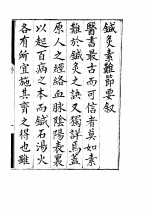 鍼灸素難即要叙
醫書最古而可信者莫如素
難於鍼灸之訣又獨詳焉蓋
原人之經絡血脉陰陽表裏
以起百病之本而鍼石湯火
各有所宜施其齊之得也雖